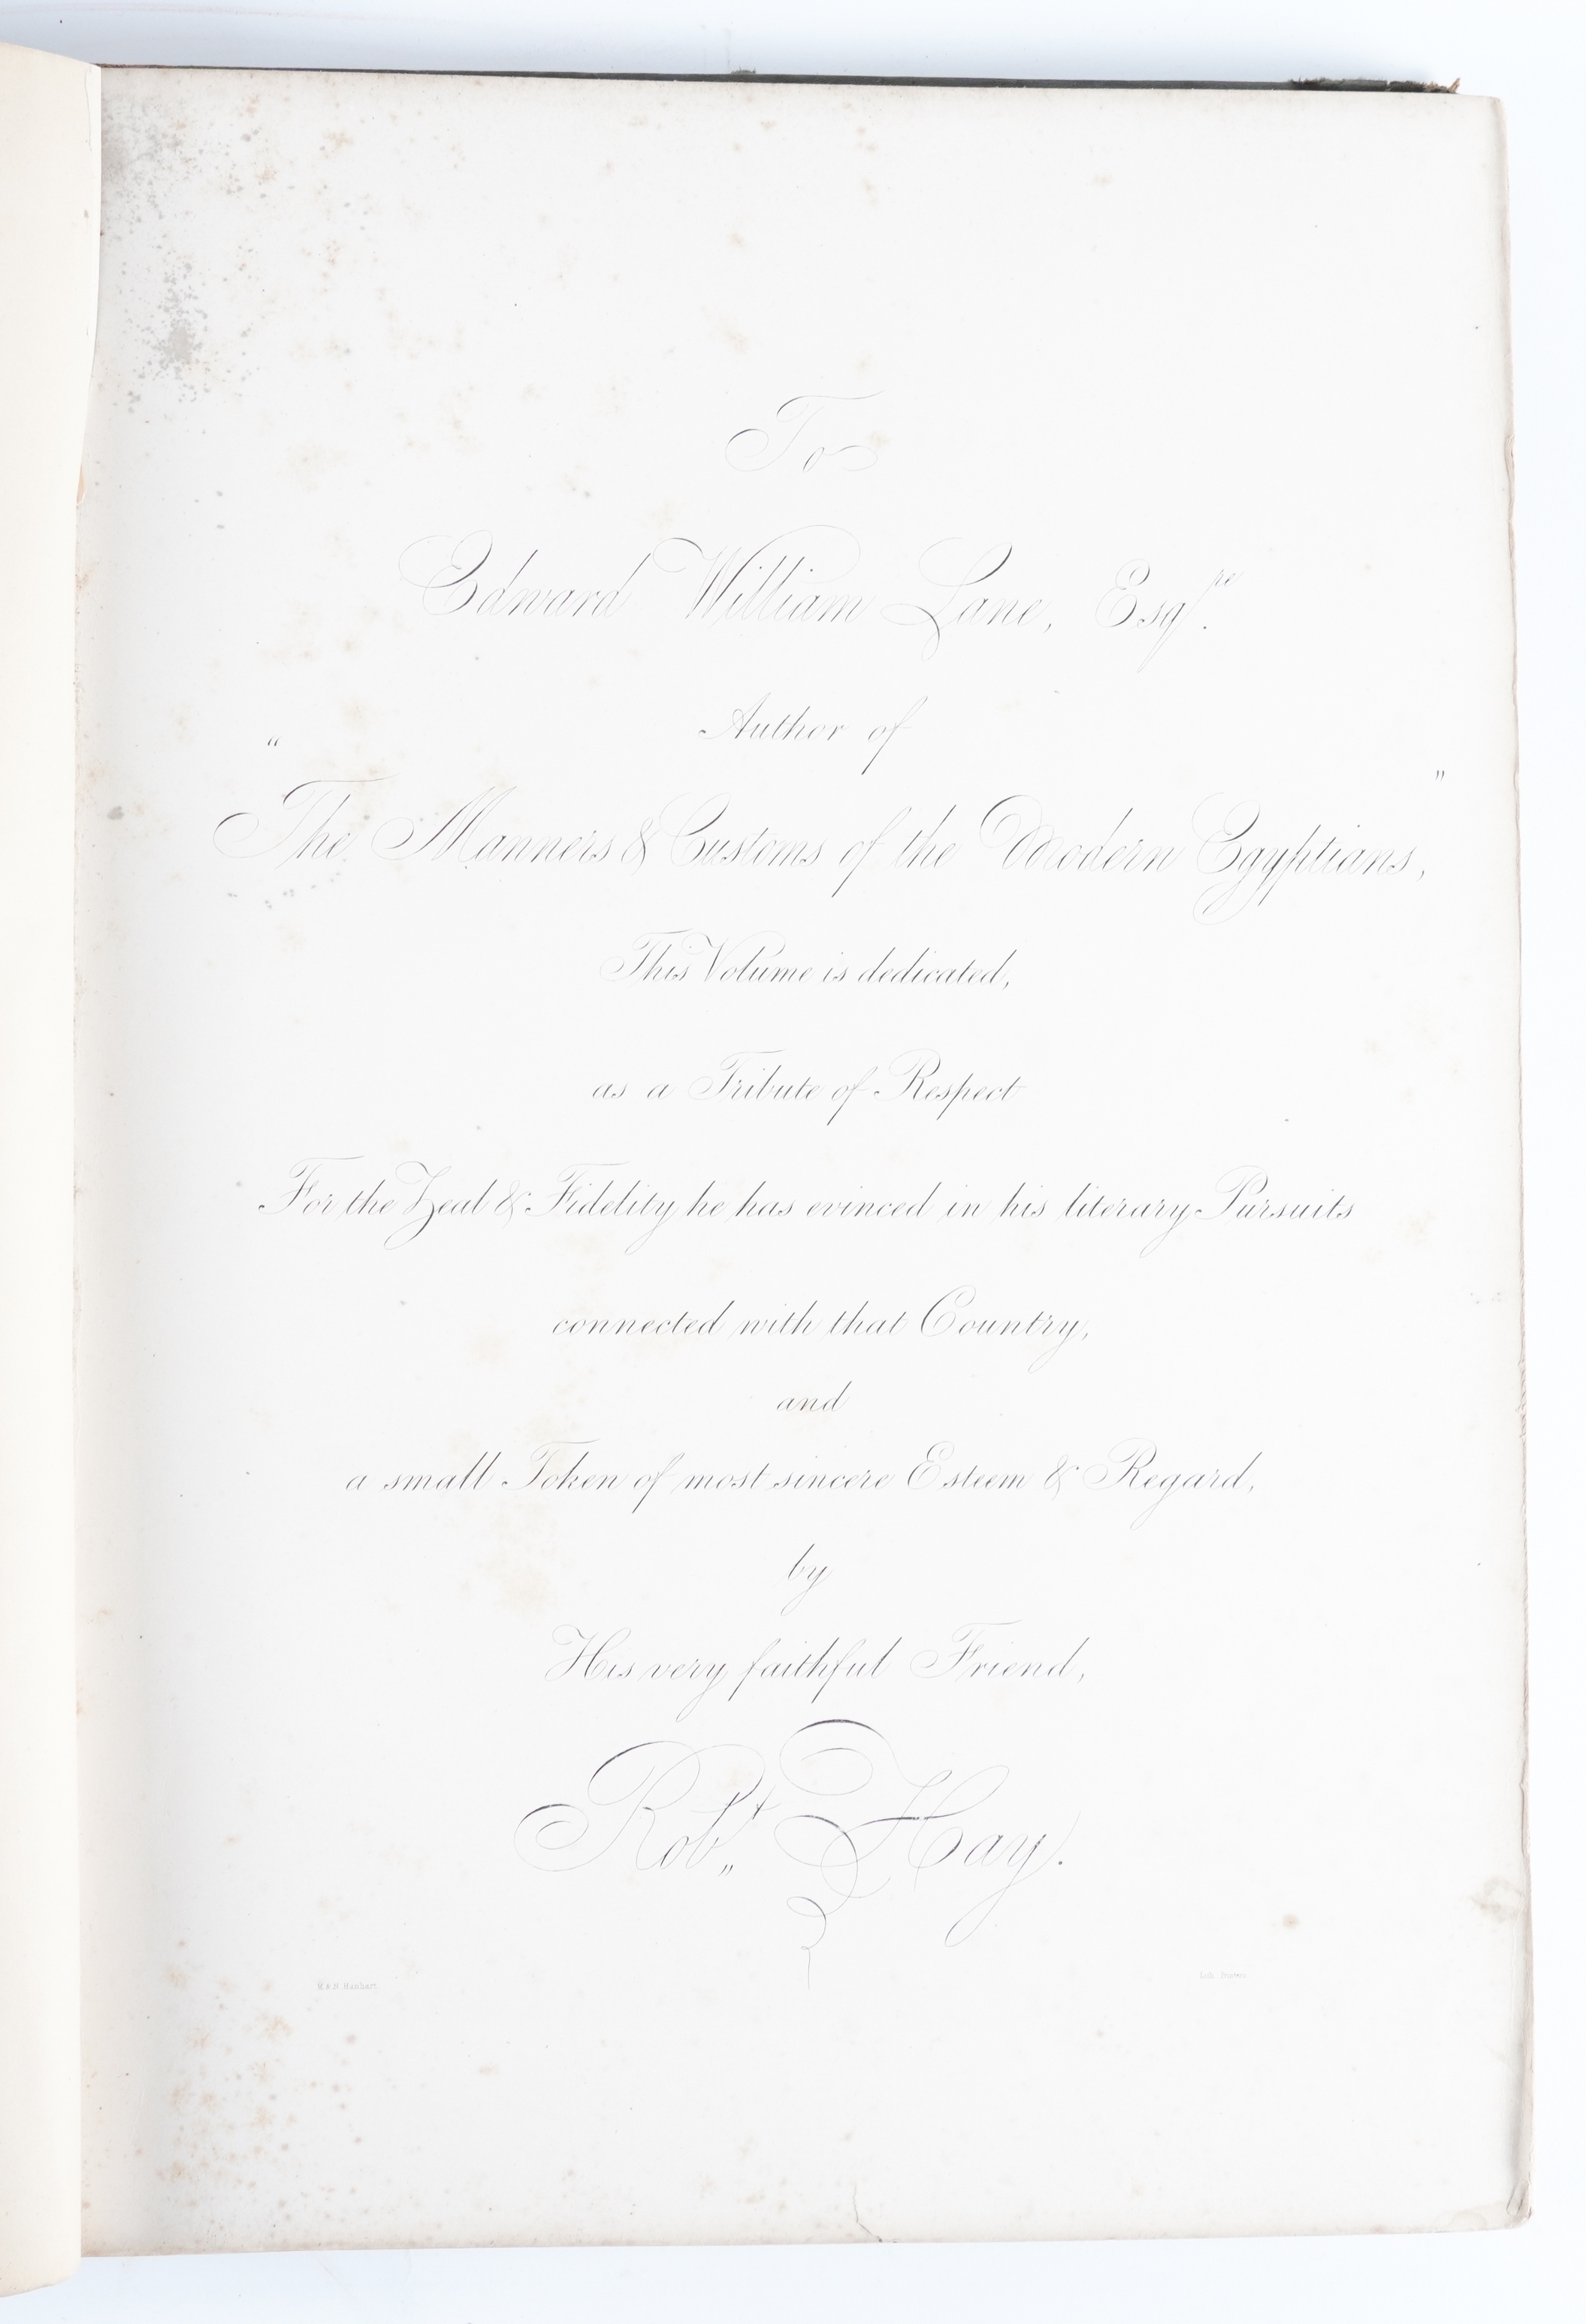 To
Edward William Lane, Esq^re.
Author of
"The Manners & Customs of the Modern Egyptians,"
This Volume is dedicated,
as a Tribute of Respect
For the Zeal & Fidelity he has evinced in his literary Pursuits
connected with that Country,
and
a small Token of most sincere Esteem & Regard,
by
His very faithful Friend,
Rob^t Hay.
M & N Hanhart. Lith. Printers